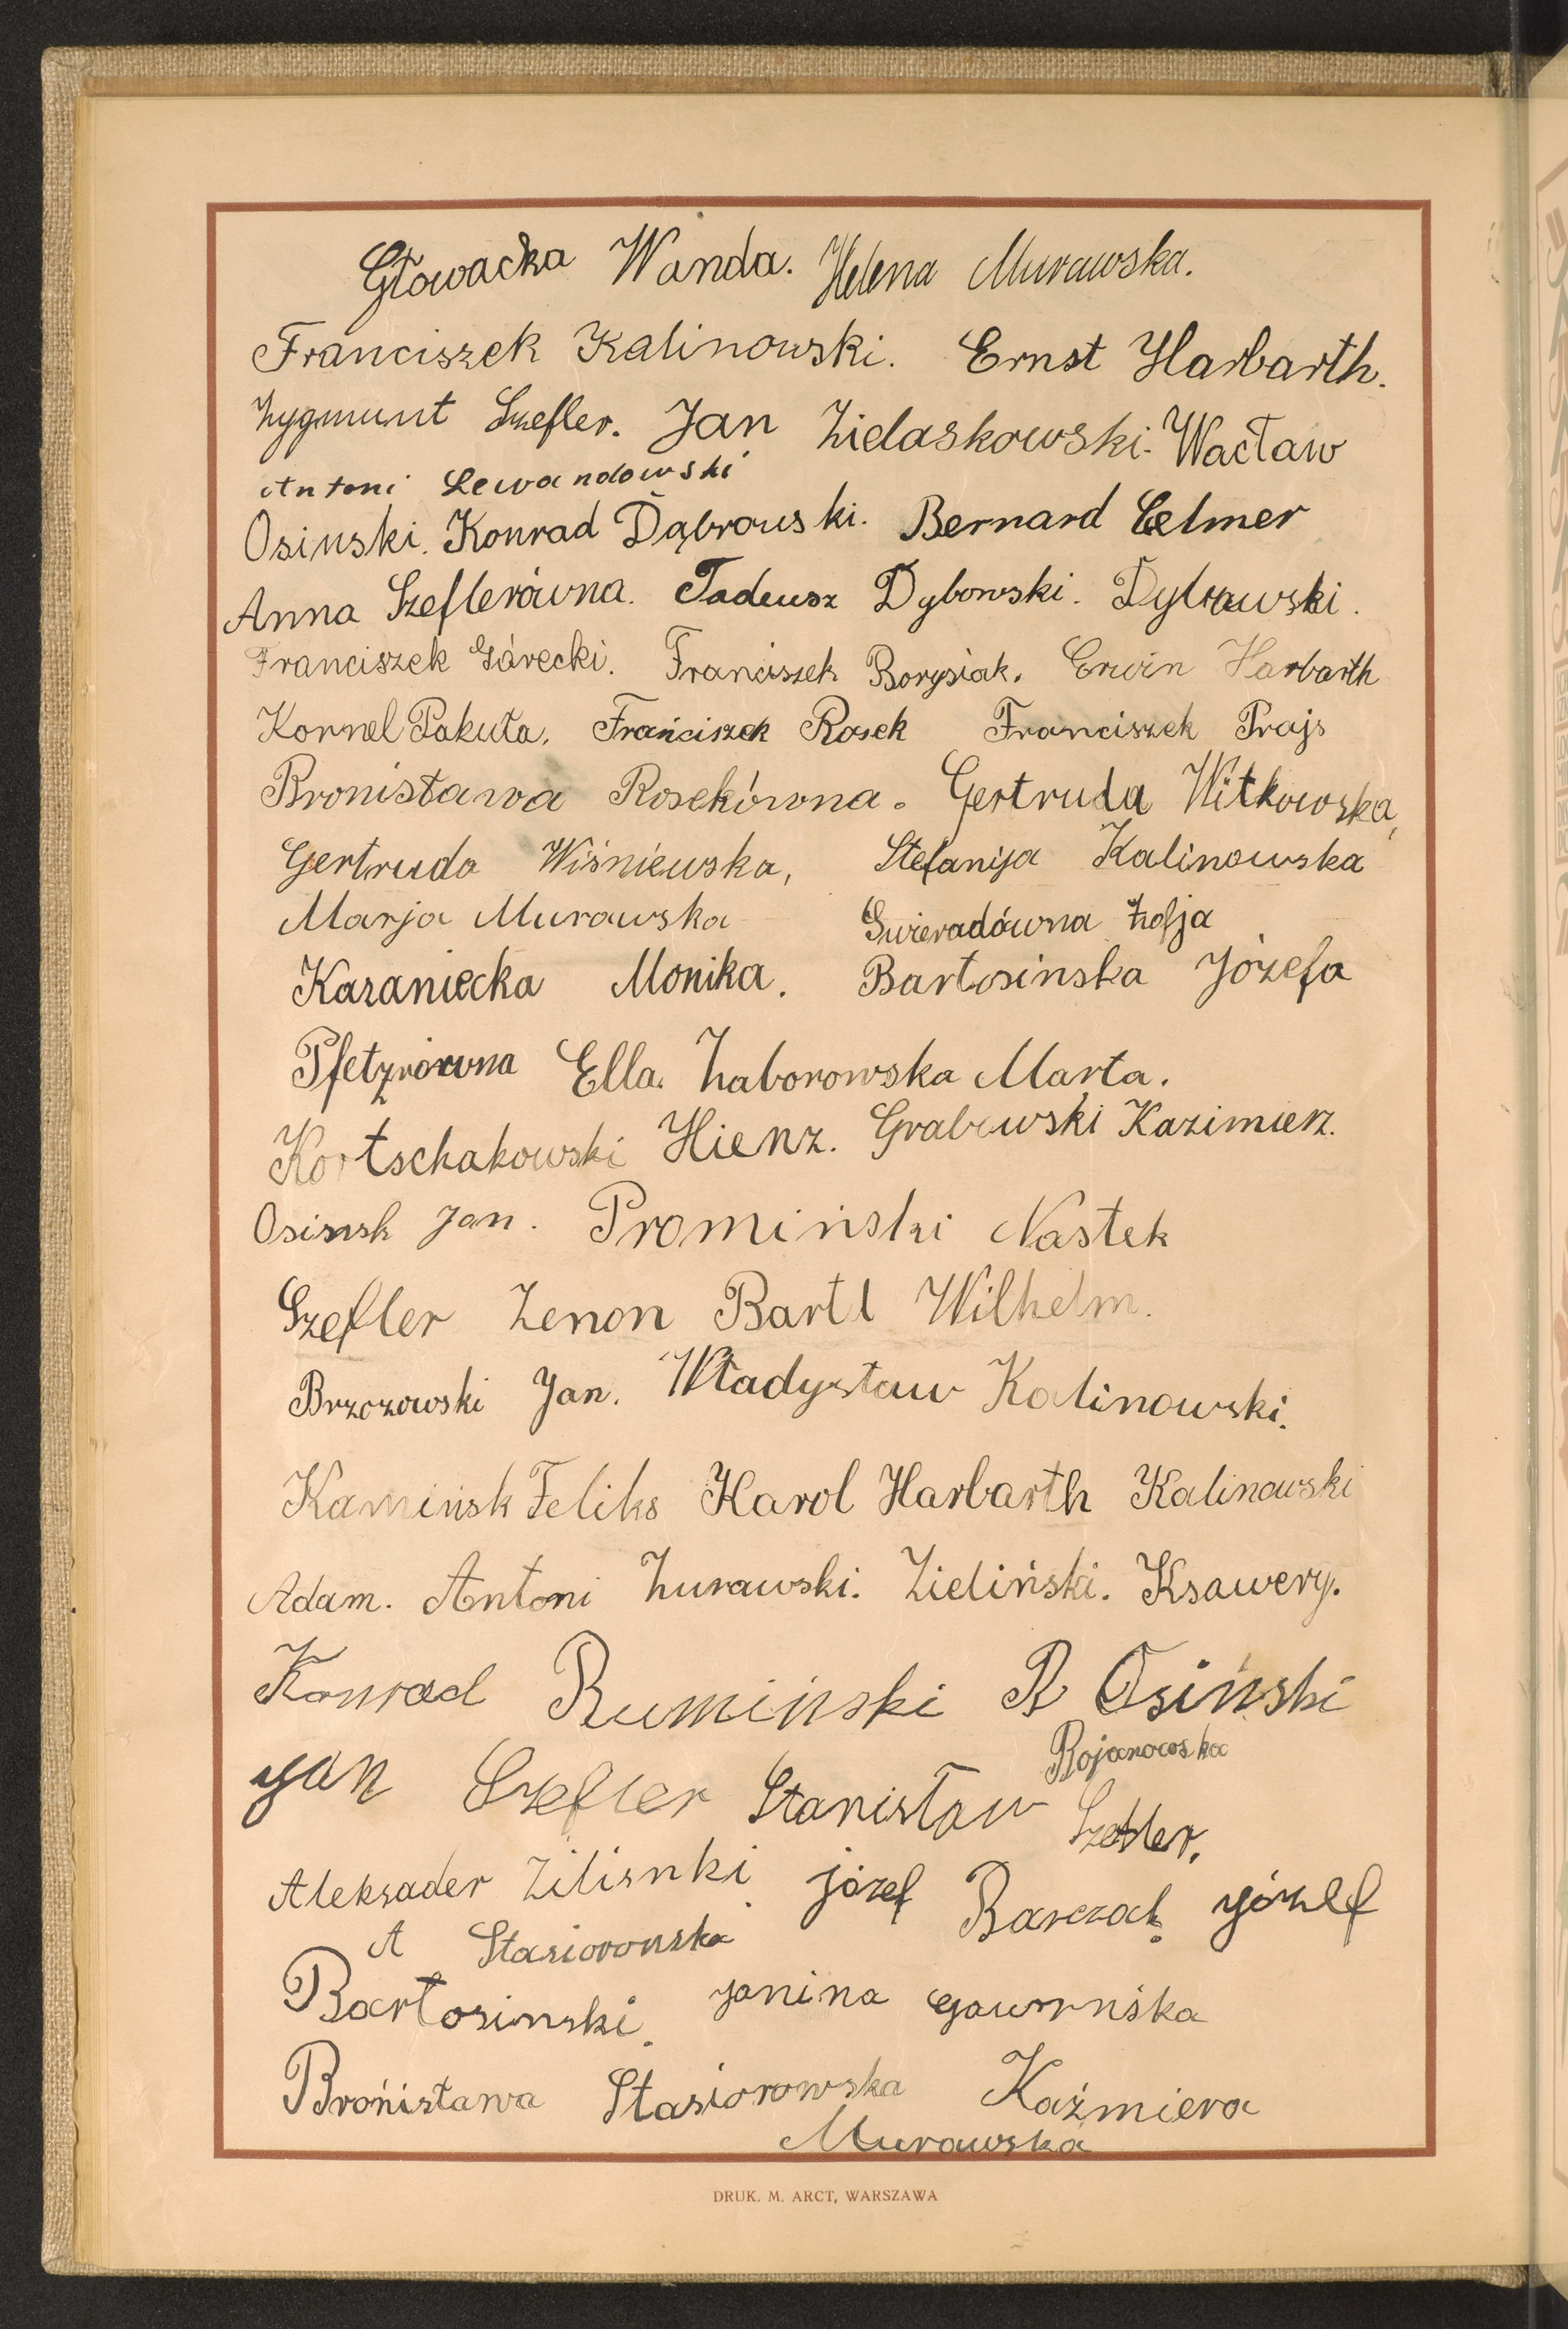 Głowacka Wanda. Helena Murawska.
Franciszek Kalinowski. Ernst Harbarth.
Zygmunt Szefler. Jan Zielaskowski. Wacław
Antoni Lewandowski
Osinski. Konrad Dąbrowski. Bernard Celmer
Anna Szeflerówna. Tadeusz Dybowski. Dybowski.
Franciszek Górecki. Franciszek Borysiak. Erwin Harbarth
Kornel Pakuła. Franciszek Rosek Franciszek Prajs
Bronisława Rosekówna. Gertruda Witkowska,
Gertruda Wiśniewska, Stefanija Kalinowska
Marja Murawska Swieradówna Zofja
Kazaniecka Monika. Bartosinska Józefa
Pfetznówna Ella. Zaborowska Marta.
Kortschakowski Hienz. Grabowski Kazimierz.
Osinsk Jan. Promiński Nastek
Szefler Zenon Bartl Wilhelm.
Brzozowski Jan. Władysław Kalinowski.
Kamińsk Feliks Karol Harbarth Kalinowski
Adam. Antoni Zurawski. Zieliński. Ksawery.
Konrad Rumiński R Osiński
Jan Szefler Stanisław Rojanowska
Szefler.
Aleksader Zilisnki józef Barczak. józef
A Stasiorowska
Bartosinski. Janina Gawsrnśka
Brońisława Stasiorowska Kaźmiera
Murawska
DRUK. M. ARCT, WARSZAWA